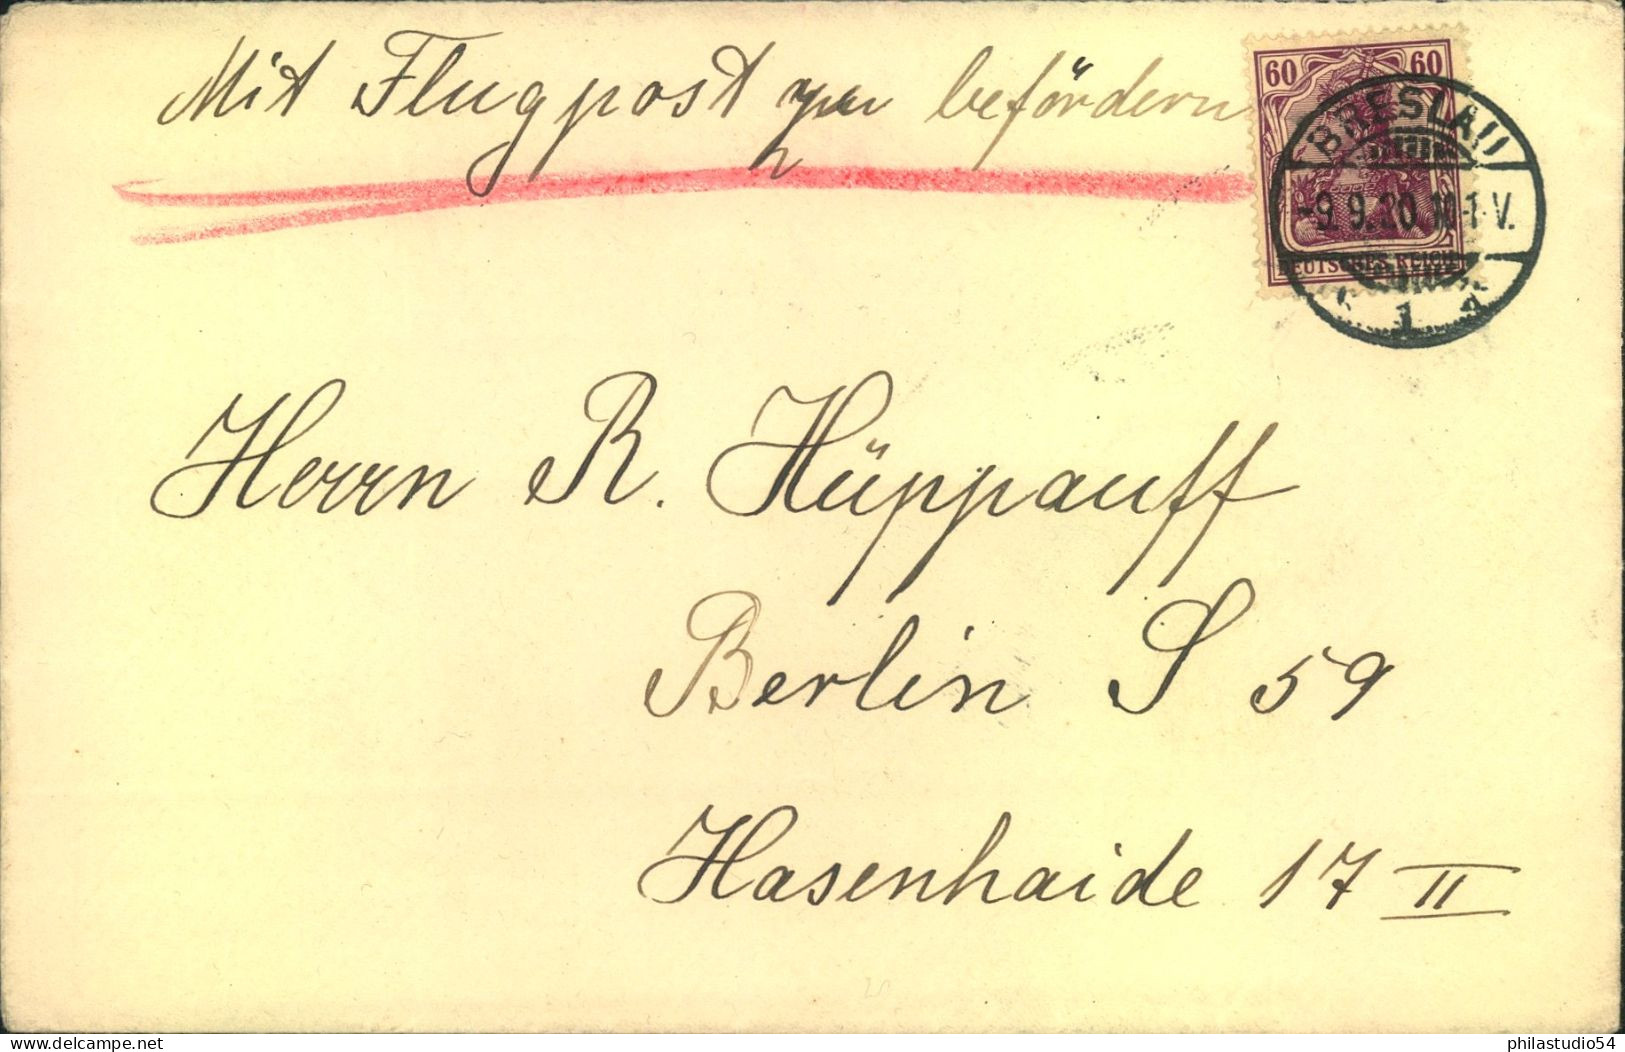 Mit Flugpost zu befördern
60 60
DEUTSCHES REICH
BRESLAU
-9.9.20 10-1 V.
1
Herrn R. Hüppauff
Berlin S 59
Hasenhaide 17 II
www.delcampe.net
philastudio54